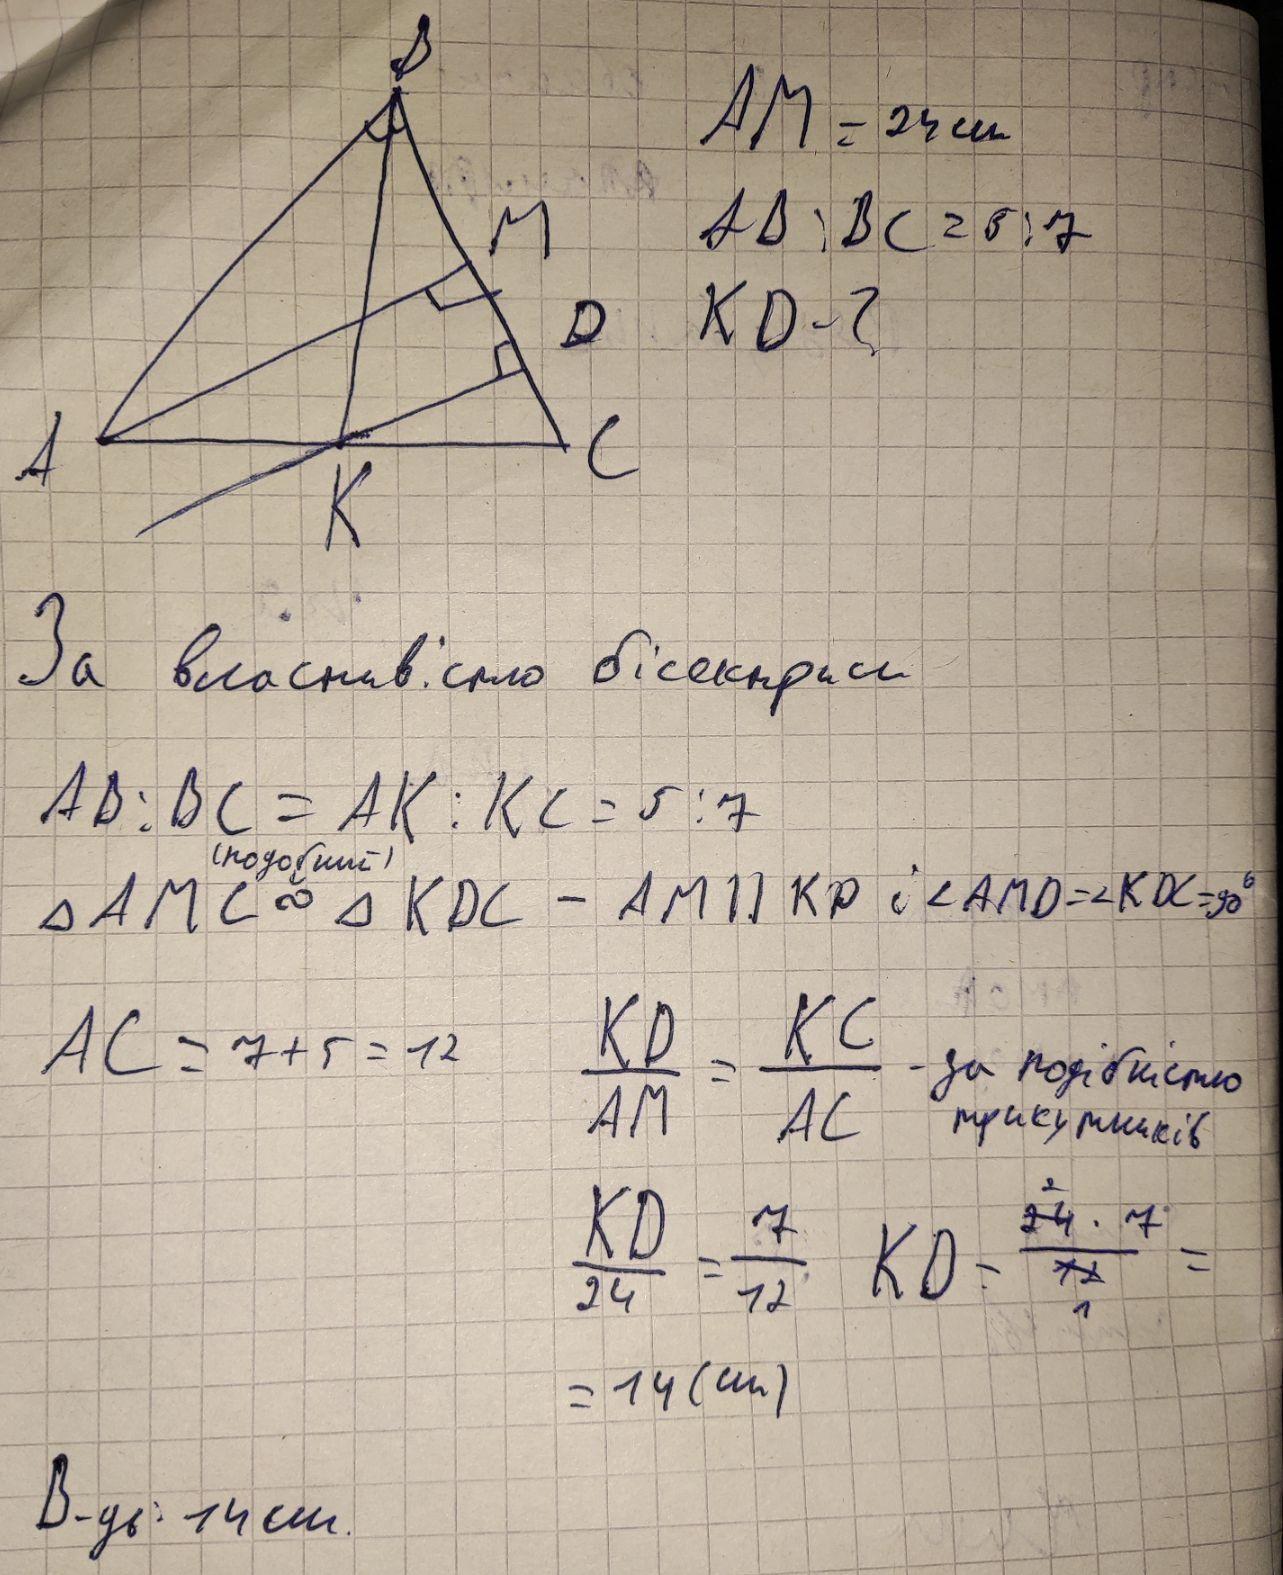 B
AM = 24 см
AB : BC = 5 : 7
KD - ?
M
D
A
C
K
За властивістю бісектриси
AB : BC = AK : KC = 5 : 7
(подобний)
△ AMC ∾ △ KDC - AM || KD і ∠AMD = ∠KDC = 90°
AC = 7 + 5 = 12
KD/AM = KC/AC - за подібністю
трикутників
KD/24 = 7/12 KD = 24 · 7/12 =
2
1
= 14 (см)
В-дь: 14 см.